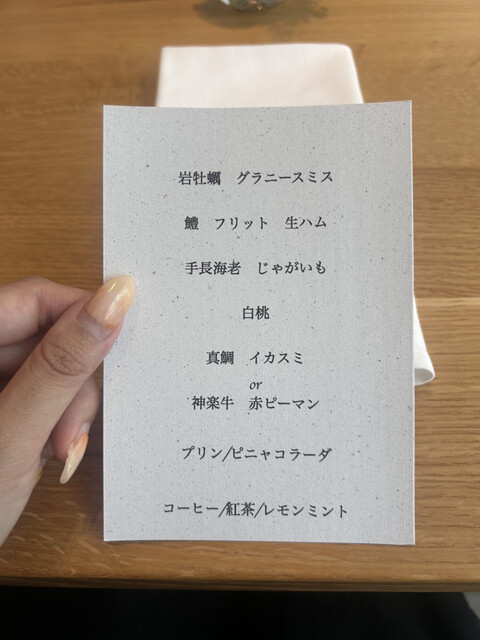 岩牡蠣　グラニースミス
鱧　フリット　生ハム
手長海老　じゃがいも
白桃
真鯛　イカスミ
or
神楽牛　赤ピーマン
プリン/ピニャコラーダ
コーヒー/紅茶/レモンミント